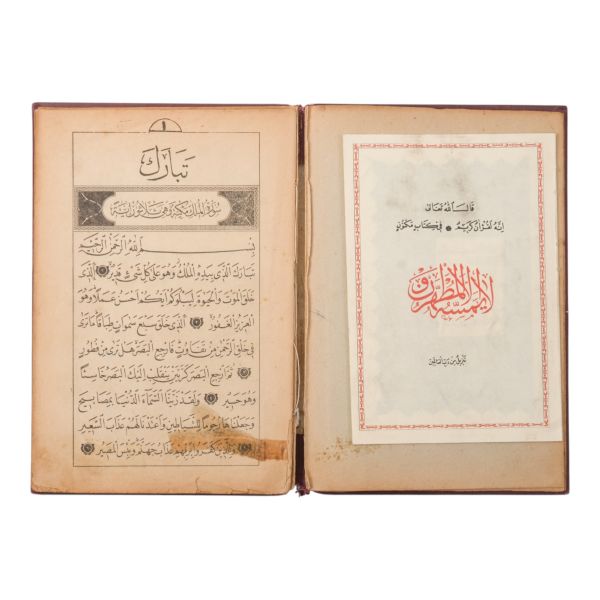 قال الله تعالى
إنه لقرآن كريم * في كتاب مكنون
لا يمسه إلا المطهرون
تنزيل من رب العالمين
١
تبارك
سورة الملك مكية وهي ثلاثون آية
بسم الله الرحمن الرحيم
تبارك الذي بيده الملك وهو على كل شيء قدير ۝ الذي
خلق الموت والحيوة ليبلوكم أيكم أحسن عملا وهو
العزيز الغفور ۝ الذي خلق سبع سموات طباقا ما ترى
في خلق الرحمن من تفاوت فارجع البصر هل ترى من فطور
۝ ثم ارجع البصر كرتين ينقلب إليك البصر خاسئا
وهو حسير ۝ ولقد زينا السماء الدنيا بمصابيح
وجعلناها رجوما للشياطين وأعتدنا لهم عذاب السعير
۝ وللذين كفروا بربهم عذاب جهنم وبئس المصير ۝